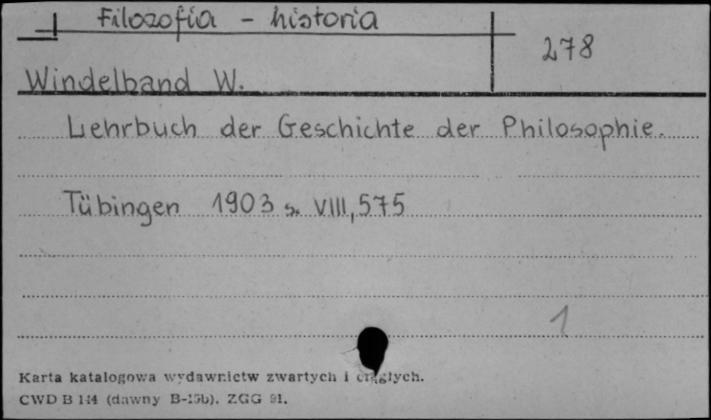 Filozofia - historia
278
Windelband W.
Lehrbuch der Geschichte der Philosophie.
Tübingen 1903 s. VIII, 575
1
Karta katalogowa wydawnictw zwartych i ciągłych.
CWD B 144 (dawny B-15b). ZGG 91.